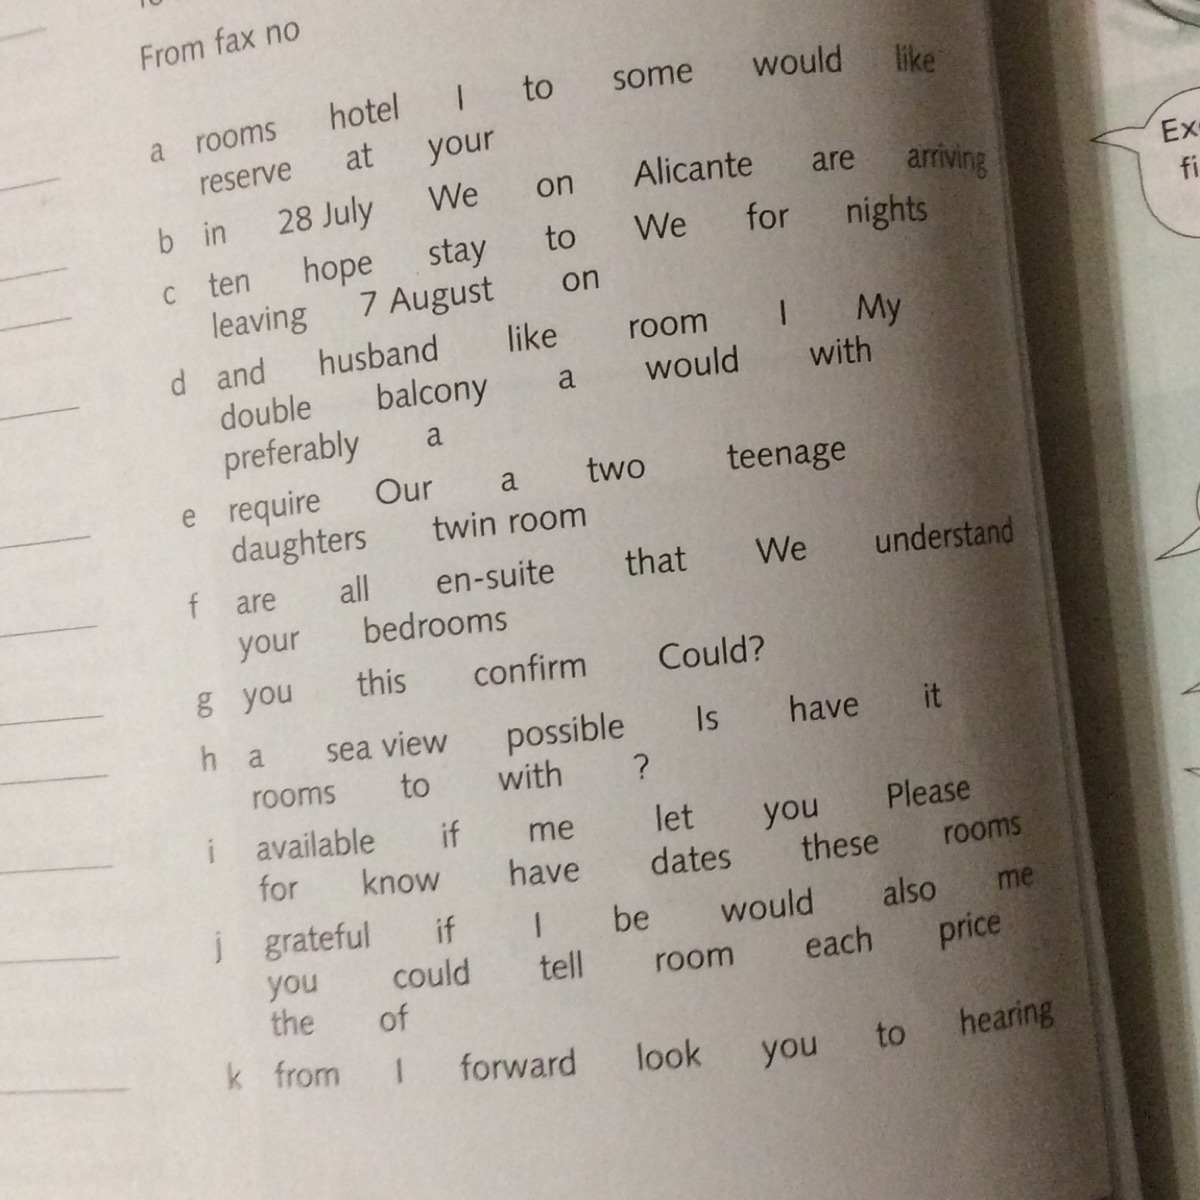 From fax no
a rooms hotel I to some would like
reserve at your
b in 28 July We on Alicante are arriving
c ten hope stay to We for nights
leaving 7 August on
d and husband like room I My
double balcony a would with
preferably a
e require Our a two teenage
daughters twin room
f are all en-suite that We understand
your bedrooms
g you this confirm Could?
h a sea view possible Is have it
rooms to with ?
i available if me let you Please
for know have dates these rooms
j grateful if I be would also me
you could tell room each price
the of
k from I forward look you to hearing